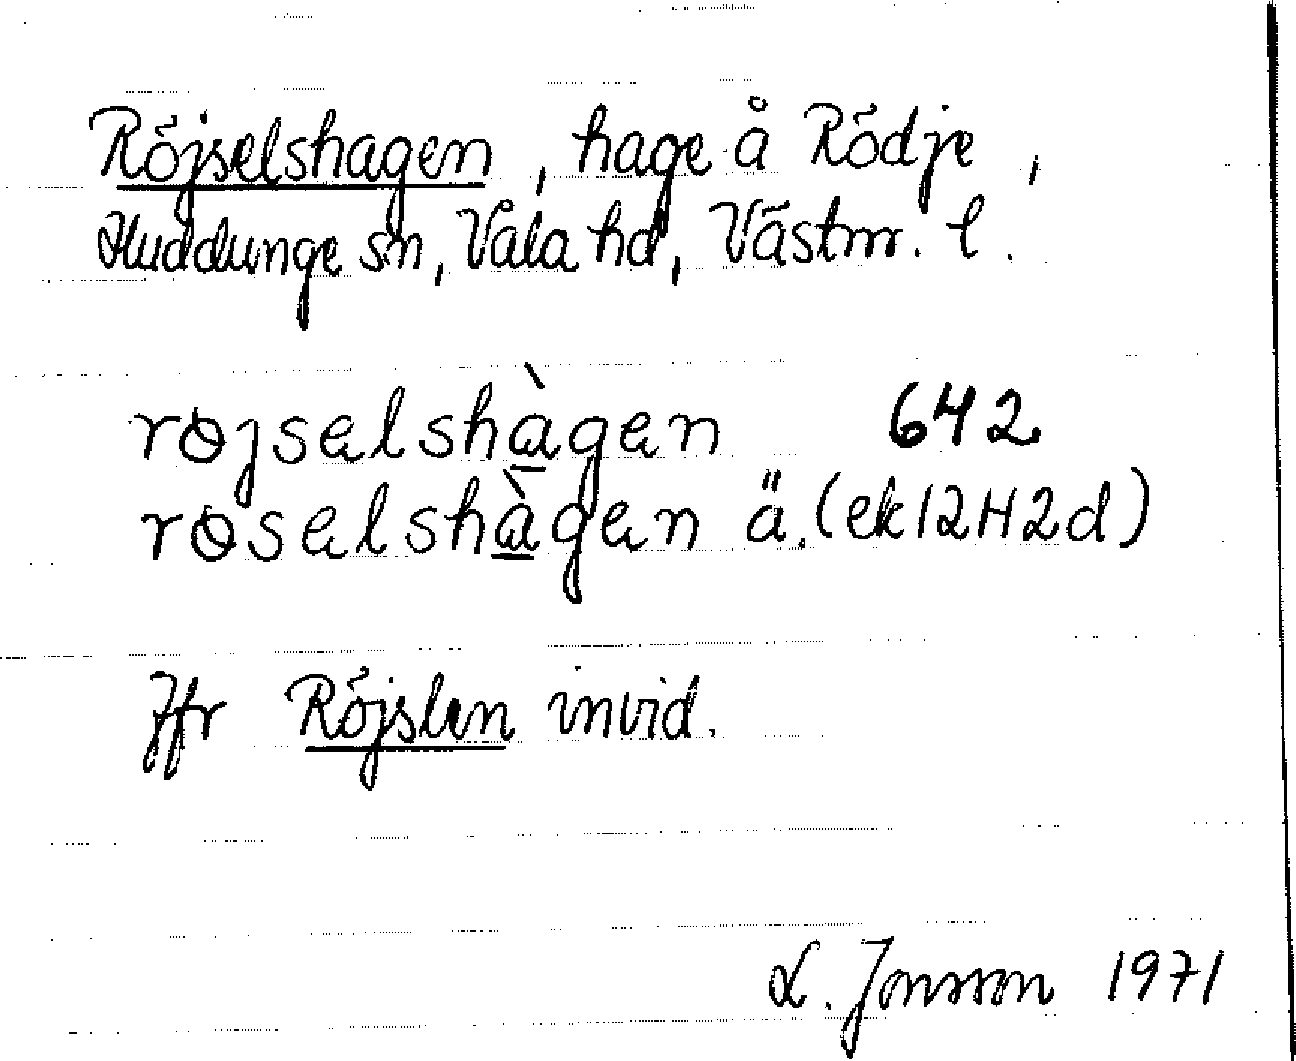 Röjselshagen, hage å Rödje,
Huddunge sn, Våla hd, Västm. l.
rɵjsəlshàgən 642
rɵsəlshàgən ä. (ek 12H2d)
Jfr Röjslen invid.
L. Jonsson 1971